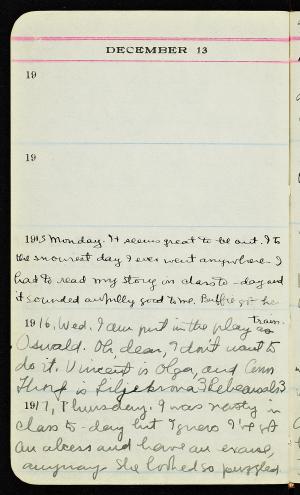 DECEMBER 13
19
19
1915 Monday. It seems great to be out. It's
the snowiest day I ever went anywhere. I
had to read my story in class to-day and
it sounded awfully good to me. Buffie got he
Train.
1916, Wed. I am put in the play as
Oswald. Oh, dear, I don't want to
do it. Vincent is Olga, and Ann
is Liljekrona? Rehearsals?
1917, Thursday. I was nasty in
class to-day but I guess I've got
an abcess and have an excuse,
anyway. She looked so puzzled